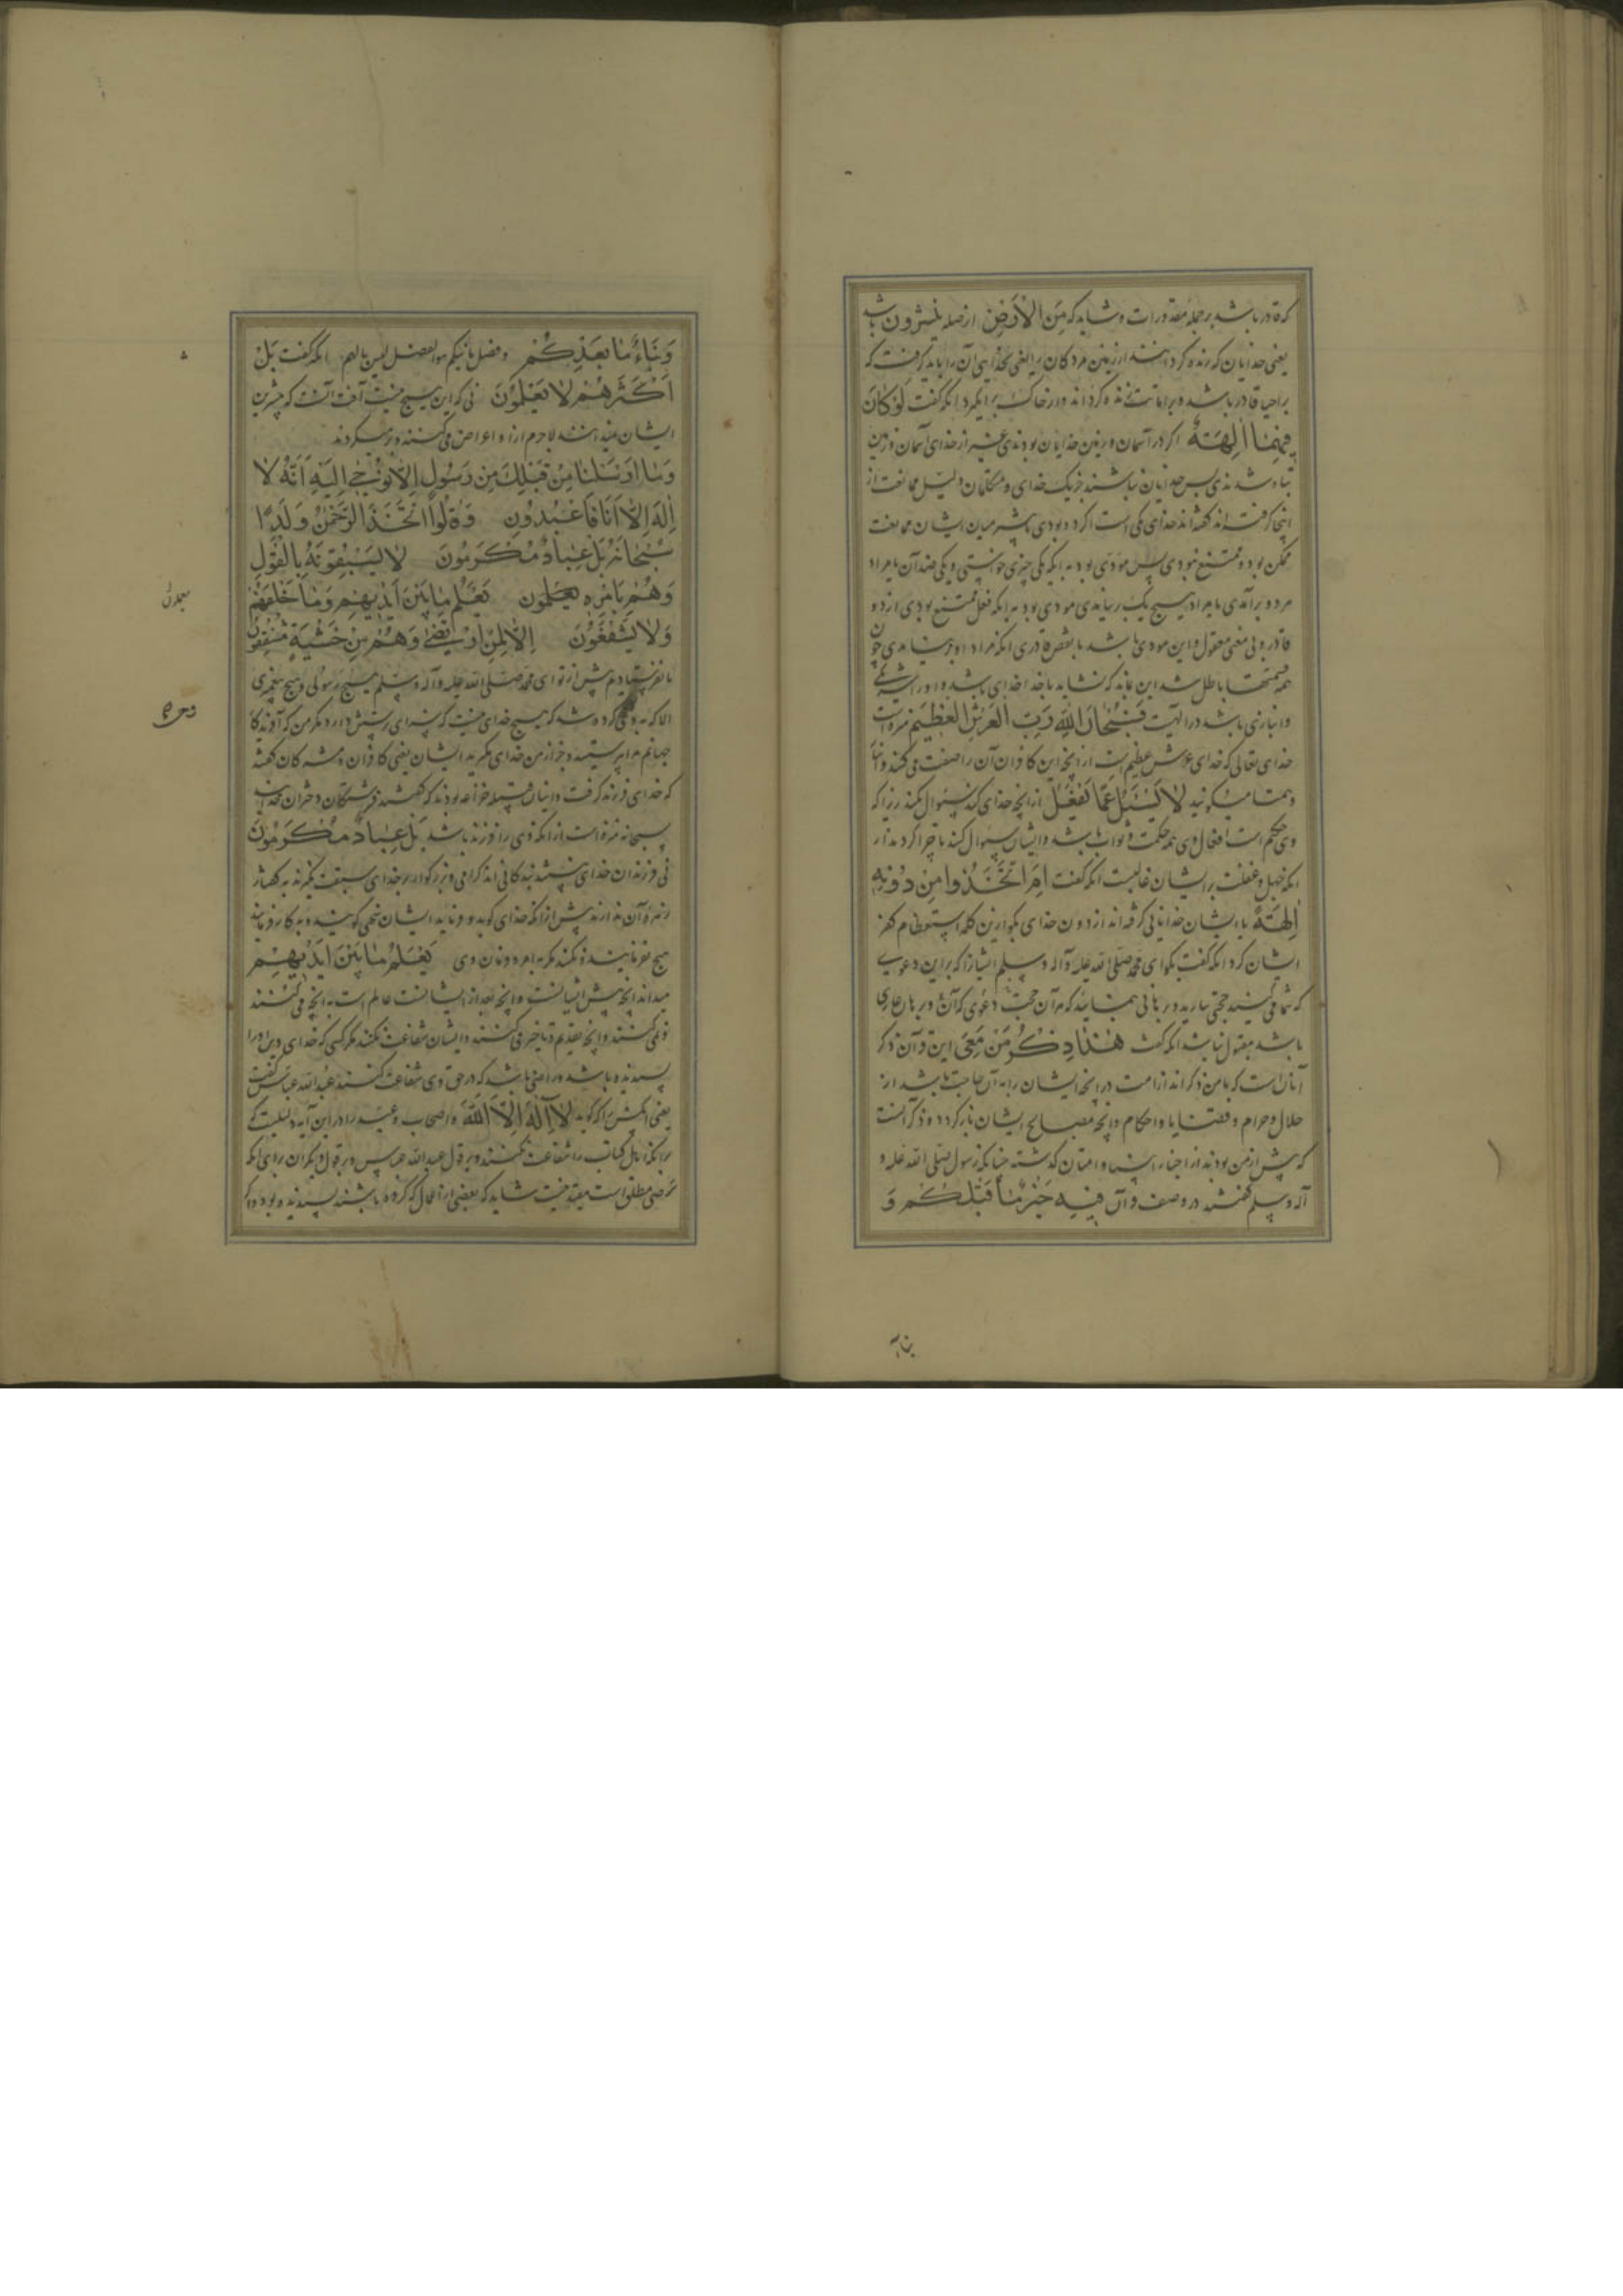 که قادر باشد بر جمله مقدورات و شاید که مِنَ الْاَرْضِ از صله ینشرون باشد
یعنی خدایان که زنده کرداننده از زمین مردکان را یعنی بخدایی آن را باید کرفت که
بر احیا قادر باشد و بر اماتت زنده کرداند و از خاک برانکیزد انکه کفت لَوْ كَانَ
فِيهِمَا اٰلِهَةٌ اکر در آسمان و زمین خدایان بودندی غیر از خدای آسمان و زمین
تباه شدندی پس خدایان نباشند جز یک خدای و متکلمان دلیل ممانعت از
اینجا کرفته اند کفته اند خدای یکی است اکر دو بودی باشد میان ایشان ممانعت
ممکن بود و ممتنع نبودی پس مؤدی بود به انکه یکی چیزی خواستی و یکی ضد آن یا مراد
هر دو برآمدی یا مراد هیچ یک بر نیامدی مودی بود به انکه فعل ممتنع بودی از دو
قادر و بی منعی معقول و این مودی باشد با نقص قادری انکه مراد او بر نیامدی چون
همه قسمتها باطل شد این بماند که نشاید با خدا خدای باشد و او را شریکی
و انبازی باشد در الهیت فَسُبْحَانَ اللّٰهِ رَبِّ الْعَرْشِ الْعَظِيمِ منزه است
خدای تعالی که خدای عرش عظیم است از انچه این کافران آن را صفت می کنند و انبا
و همتا میکویند لَا يُسْئَلُ عَمَّا يَفْعَلُ از انچه خدای کند سئوال نکنند زیرا که
وی حکیم است افعال وی همه حکمت و ثواب باشد و ایشان سئوال کنند تا چرا کردند از
انکه جهل و غفلت بر ایشان غالبست انکه کفت اَمِ اتَّخَذُوا مِنْ دُونِهِ
اٰلِهَةً یا ایشان خدایانی کرفته اند از دون خدای بکو ازین کلمه استعظام کفر
ایشان کرد انکه کفت بکو ای محمد صلی الله علیه وآله وسلم ایشانرا که بر این دعوی
که شما می کنید حجتی بیارید و برهانی بنمایید که هر آن حجت دعوی که آن از برهان عاری
باشد مقبول نباشد انکه کفت هٰذَا ذِكْرُ مَنْ مَعِيَ این قرآن ذکر
آنان است که با من ذکر اند از امت در انچه ایشان را به آن حاجت باشد از
حلال و حرام و قضایا و احکام و انچه مصالح ایشان باز کردد و ذکر آنست
که پیش از من بودند از اخبار انبیا و امتان کذشته چنانکه رسول صلی الله علیه و
آله وسلم کفتند در وصف قرآن فِيهِ خَبَرُ مَا قَبْلَكُمْ وَ
وَنَبَاءُ مَا بَعْدِكُمْ و فصل ما بینکم هو الفصل لیس بالهزل انکه کفت بَلْ
اَكْثَرُهُمْ لَا يَعْلَمُونَ نی که این هیچ نیست آفت آنست که بیشترین
ایشان نمیدانند لاجرم از او اعراض می کنند و بر میکردند
وَمَا اَرْسَلْنَا مِنْ قَبْلِكَ مِنْ رَسُولٍ اِلَّا نُوحِي اِلَيْهِ اَنَّهُ لَا
اِلٰهَ اِلَّا اَنَا فَاعْبُدُونِ وَقَالُوا اتَّخَذَ الرَّحْمٰنُ وَلَدًا
سُبْحَانَهُ بَلْ عِبَادٌ مُكْرَمُونَ لَا يَسْبِقُونَهُ بِالْقَوْلِ
وَهُمْ بِاَمْرِهِ يَعْلَمُون يَعْلَمُ مَا بَيْنَ اَيْدِيهِمْ وَمَا خَلْفَهُمْ
وَلَا يَشْفَعُونَ اِلَّا لِمَنِ ارْتَضٰى وَهُمْ مِنْ خَشْيَتِهِ مُشْفِقُونَ
ما نفرستادیم پیش از تو ای محمد صلی الله علیه وآله وسلم هیچ رسولی و هیچ پیغمبری
الا که به وحی کرده شد که هیچ خدای نیست که سزای پرستش دارد مکر من که آفریدکار
جهانم مرا پرستید و جز از من خدای مکیرید ایشان یعنی کافران و مشرکان کفتند
که خدای فرزند کرفت و اینان قبیله خزاعه بودند که کفتند فرشتکان دختران خدااند
سبحانه منزه است از انکه وی را فرزند باشد بَلْ عِبَادٌ مُكْرَمُونَ
نی فرزندان خدای نیستند بندکانی اند کرامی و بزرکوار بر خدای سبقت نکیرند به کفتار
زهره آن ندارند پیش از انکه خدای کوید و فرماید ایشان سخنی کویند و به کار فرمایند
هیچ نفرمایند و نکنند مکر به امر و فرمان وی يَعْلَمُ مَا بَيْنَ اَيْدِيهِمْ
میداند انچه پیش ایشانست و انچه بعد از ایشانست عالم است به انچه می کنند
و نمی کنند و انچه تقدیم و تاخیر می کنند و ایشان شفاعت نکنند مکر کسی که خدای دین او را
پسندیده باشد و راضی باشد که در حق وی شفاعت کنند عبدالله عباس کفت
یعنی آنکس را که کوید لَا اِلٰهَ اِلَّا اللّٰهُ و اصحاب وعید را در این آیه دلیلیست که
بر انکه اهل کبائر را شفاعت نکنند و بر قول عبدالله عباس و بر قول دیکران برای انکه
مرضی مطلق است مقید نیست شاید که بعضی از اعمال که کرده باشند پسندیده بود و او
یعملون
وحی